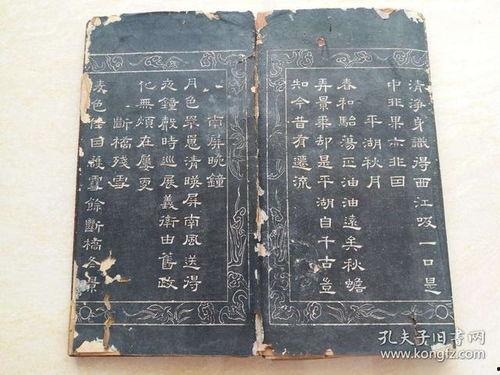 清淨身識得西江吸一口是
中非果亦非因
平湖秋月
春和駘蕩正油油遠矣秋蟾
弄景乘却是平湖自千古豈
知今昔有遷流
南屏晚鐘
月色罘罳清暎屏南風送得
夜鐘聲時巡展義衛由舊政
化無煩在屢更
斷橋殘雪
候色佳回護雪餘斷橋冬景
孔夫子旧书网
www.kongfz.com